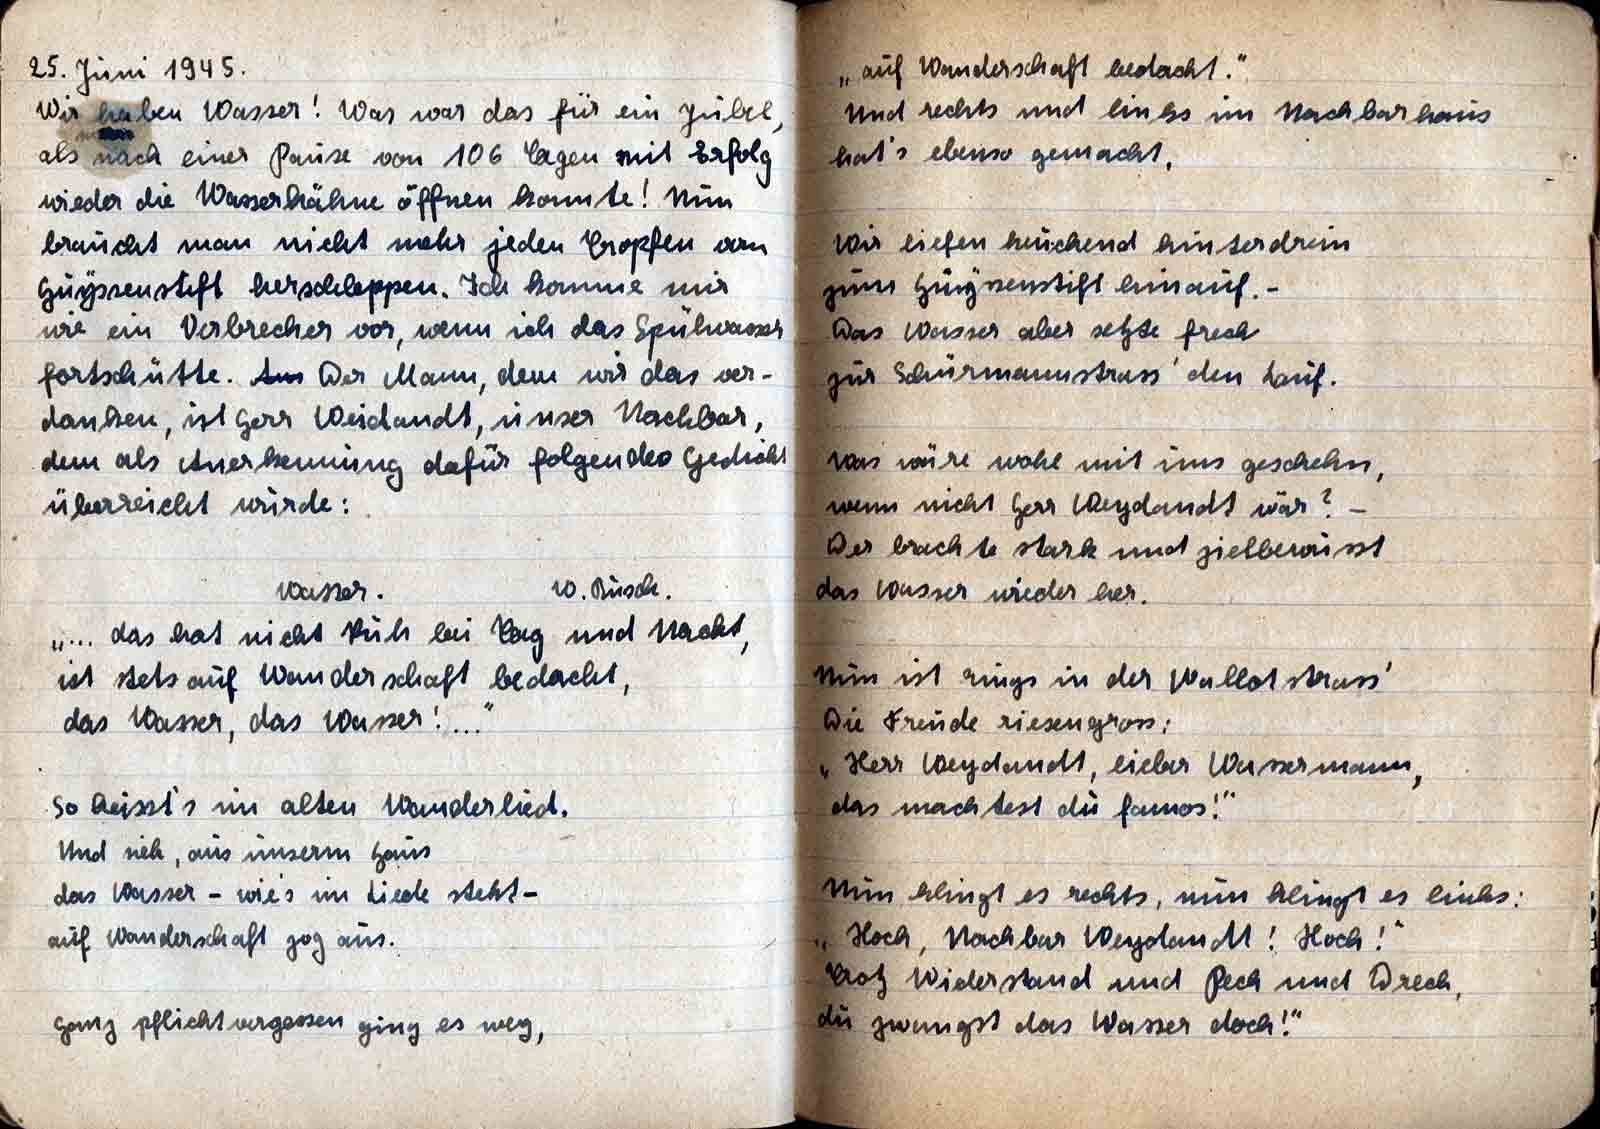 25. Juni 1945.
Wir haben Wasser! Was war das für ein Jubel,
als nach einer Pause von 106 Tagen mit Erfolg
wieder die Wasserhähne öffnen konnte! Nun
braucht man nicht mehr jeden Tropfen vom
Huyssenstift herschleppen. Ich komme mir
wie ein Verbrecher vor, wenn ich das Spülwasser
fortschütte. Der Mann, dem wir das ver-
danken, ist Herr Weidandt, unser Nachbar,
dem als Anerkennung dafür folgendes Gedicht
überreicht wurde:
Wasser. W. Busch.
„... das hat nicht Ruh bei Tag und Nacht,
ist stets auf Wanderschaft bedacht,
das Wasser, das Wasser! ..."
So heisst's im alten Wanderlied.
Und sieh, aus unserm Haus
das Wasser – wie's im Liede steht –
auf Wanderschaft zog aus.
Ganz pflichtvergessen ging es weg,
„auf Wanderschaft bedacht."
Und rechts und links im Nachbarhaus
hat's ebenso gemacht.
Wir liefen keuchend hinterdrein
zum Huyssenstift hinauf. –
Das Wasser aber setzte frech
zur Schürmannstrass' den Lauf.
Was wäre wohl mit uns geschehn,
wenn nicht Herr Weydandt wär? –
Der brachte stark und zielbewusst
das Wasser wieder her.
Nun ist rings in der Wallotstrass'
Die Freude riesengross:
„Herr Weydandt, lieber Wassermann,
das machtest du famos!"
Nun klingt es rechts, nun klingt es links:
„Hoch, Nachbar Weydandt! Hoch!"
Trotz Widerstand und Pech und Dreck,
du zwangst das Wasser doch!"